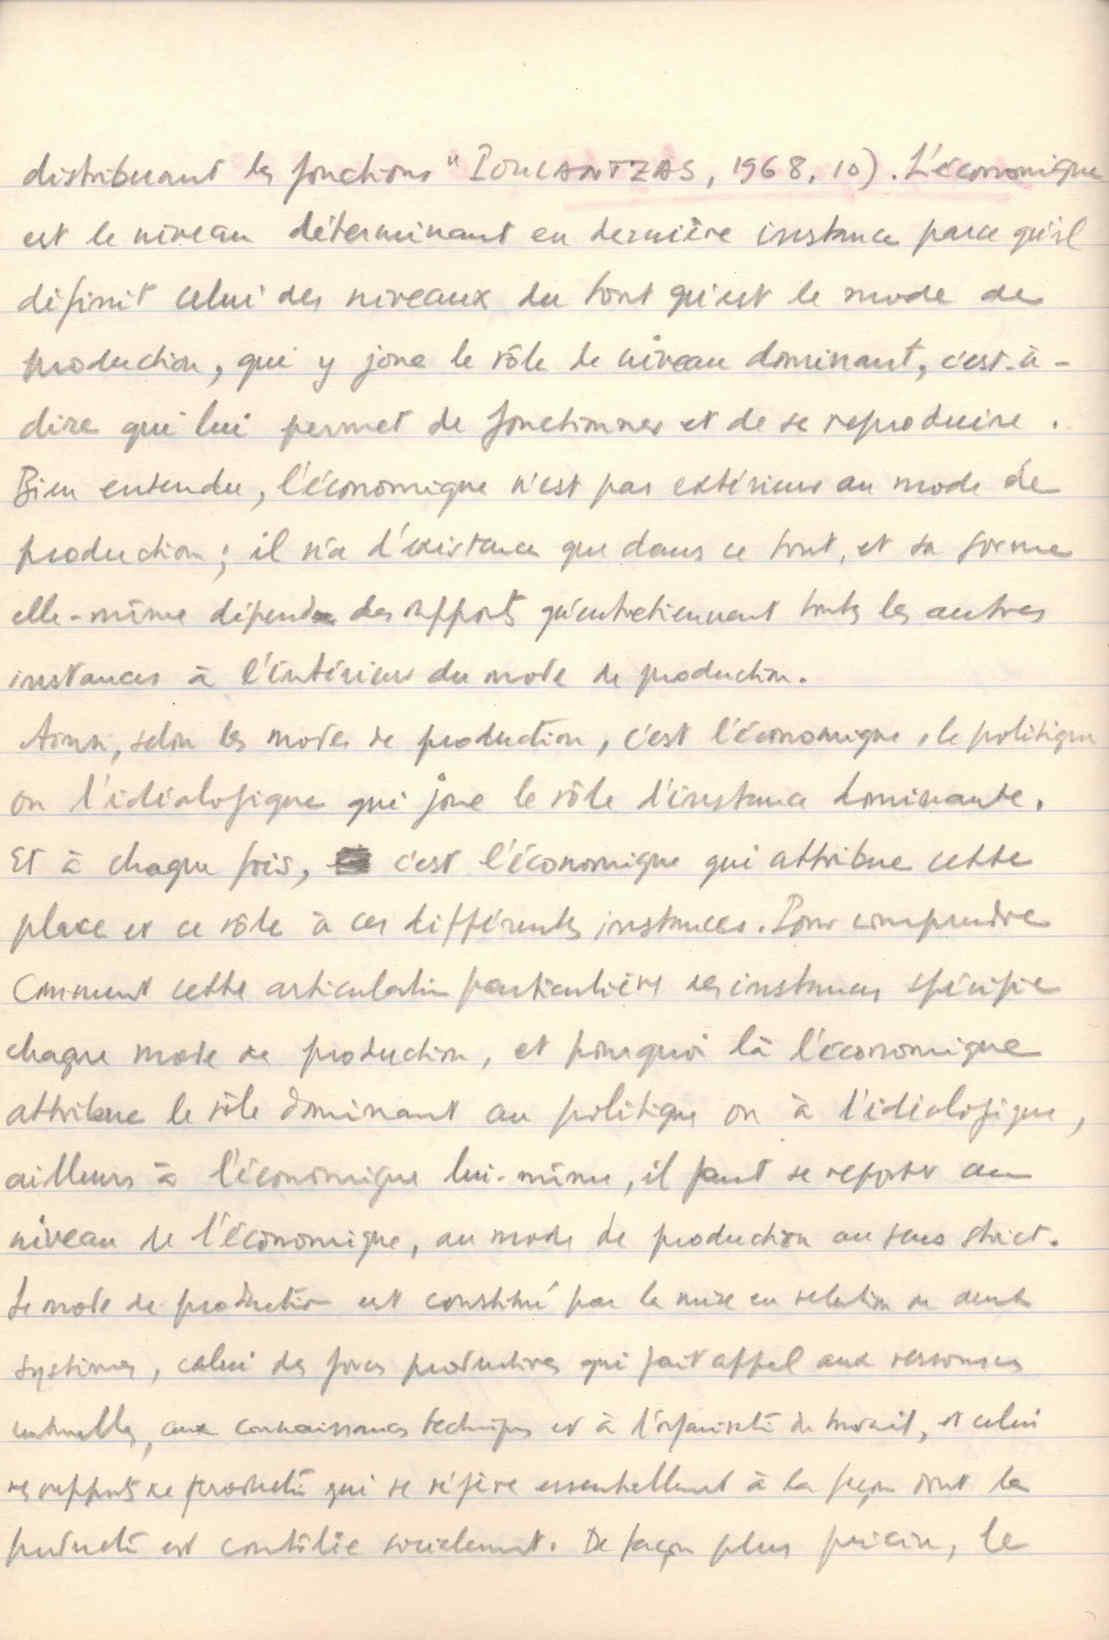 distribuant les fonctions" POULANTZAS, 1968, 10). L'économique
est le niveau déterminant en dernière instance parce qu'il
définit celui des niveaux du tout qu'est le mode de
production, qui y joue le rôle de niveau dominant, c'est-à-
dire qui lui permet de fonctionner et de se reproduire.
Bien entendu, l'économique n'est pas extérieur au mode de
production ; il n'a d'existence que dans ce tout, et sa forme
elle-même dépend des rapports qu'entretiennent toutes les autres
instances à l'intérieur du mode de production.
Ainsi, selon les modes de production, c'est l'économique, le politique
ou l'idéologique qui joue le rôle d'instance dominante.
Et à chaque fois, c'est l'économique qui attribue cette
place et ce rôle à ces différentes instances. Pour comprendre
comment cette articulation particulière des instances spécifie
chaque mode de production, et pourquoi là l'économique
attribue le rôle dominant au politique ou à l'idéologique,
ailleurs à l'économique lui-même, il faut se reporter au
niveau de l'économique, au mode de production au sens strict.
Le mode de production est constitué par la mise en relation de deux
systèmes, celui des forces productives qui fait appel aux ressources
naturelles, aux connaissances techniques et à l'organisation du travail, et celui
des rapports de production qui se réfère essentiellement à la façon dont la
production est contrôlée socialement. De façon plus précise, le